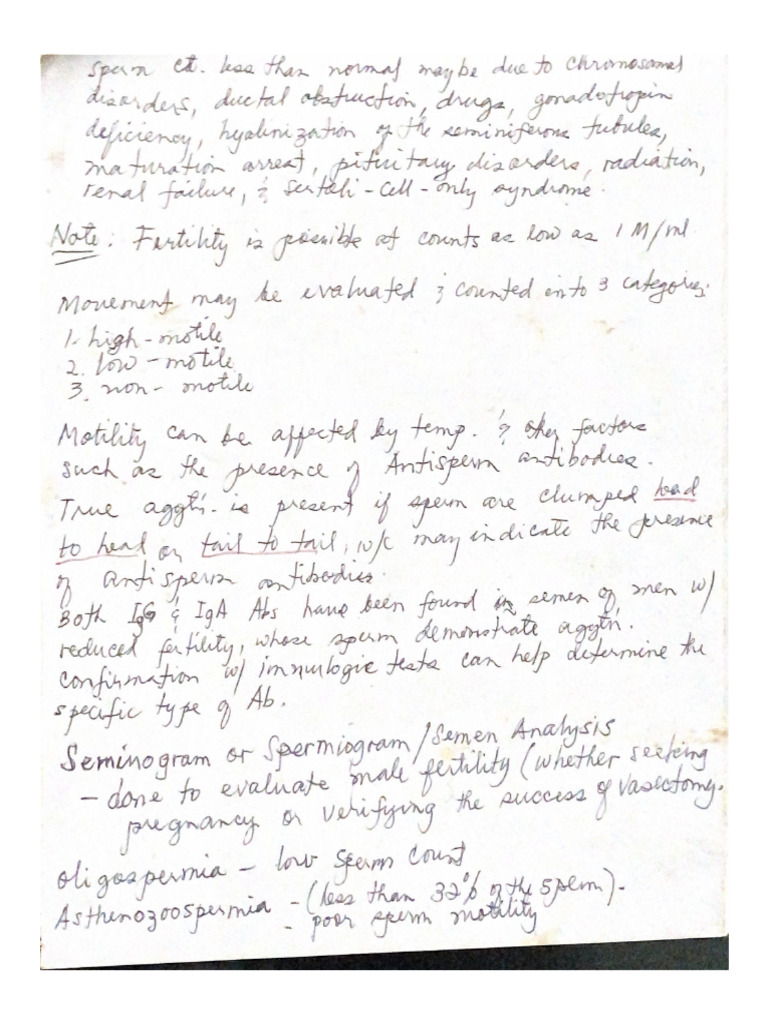 sperm ct. less than normal maybe due to chromosomal
disorders, ductal obstruction, drugs, gonadotropin
deficiency, hyalinization of the seminiferous tubules,
maturation arrest, pituitary disorders, radiation,
renal failure, & Sertoli-Cell-only syndrome.
Note: Fertility is possible at counts as low as 1 M/ml
Movement may be evaluated & counted into 3 categories:
1. high-motile
2. low-motile
3. non-motile
Motility can be affected by temp. & other factors
such as the presence of Antisperm antibodies.
True aggtn. is present if sperm are clumped head
to head or tail to tail, w/c may indicate the presence
of antisperm antibodies.
Both IgG & IgA Abs have been found in semen of men w/
reduced fertility, whose sperm demonstrate aggtn.
confirmation w/ immulogic tests can help determine the
specific type of Ab.
Seminogram or Spermiogram/Semen Analysis
- done to evaluate male fertility (whether seeking
pregnancy or verifying the success of vasectomy.
oligospermia - low sperm count
Asthenozoospermia - (less than 32% of the sperm).
- poor sperm motility